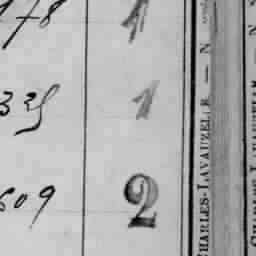 178 1
335 1
609 2
CHARLES-LAVAUZELLE — N
CHARLES-LAVAUZELLE — N